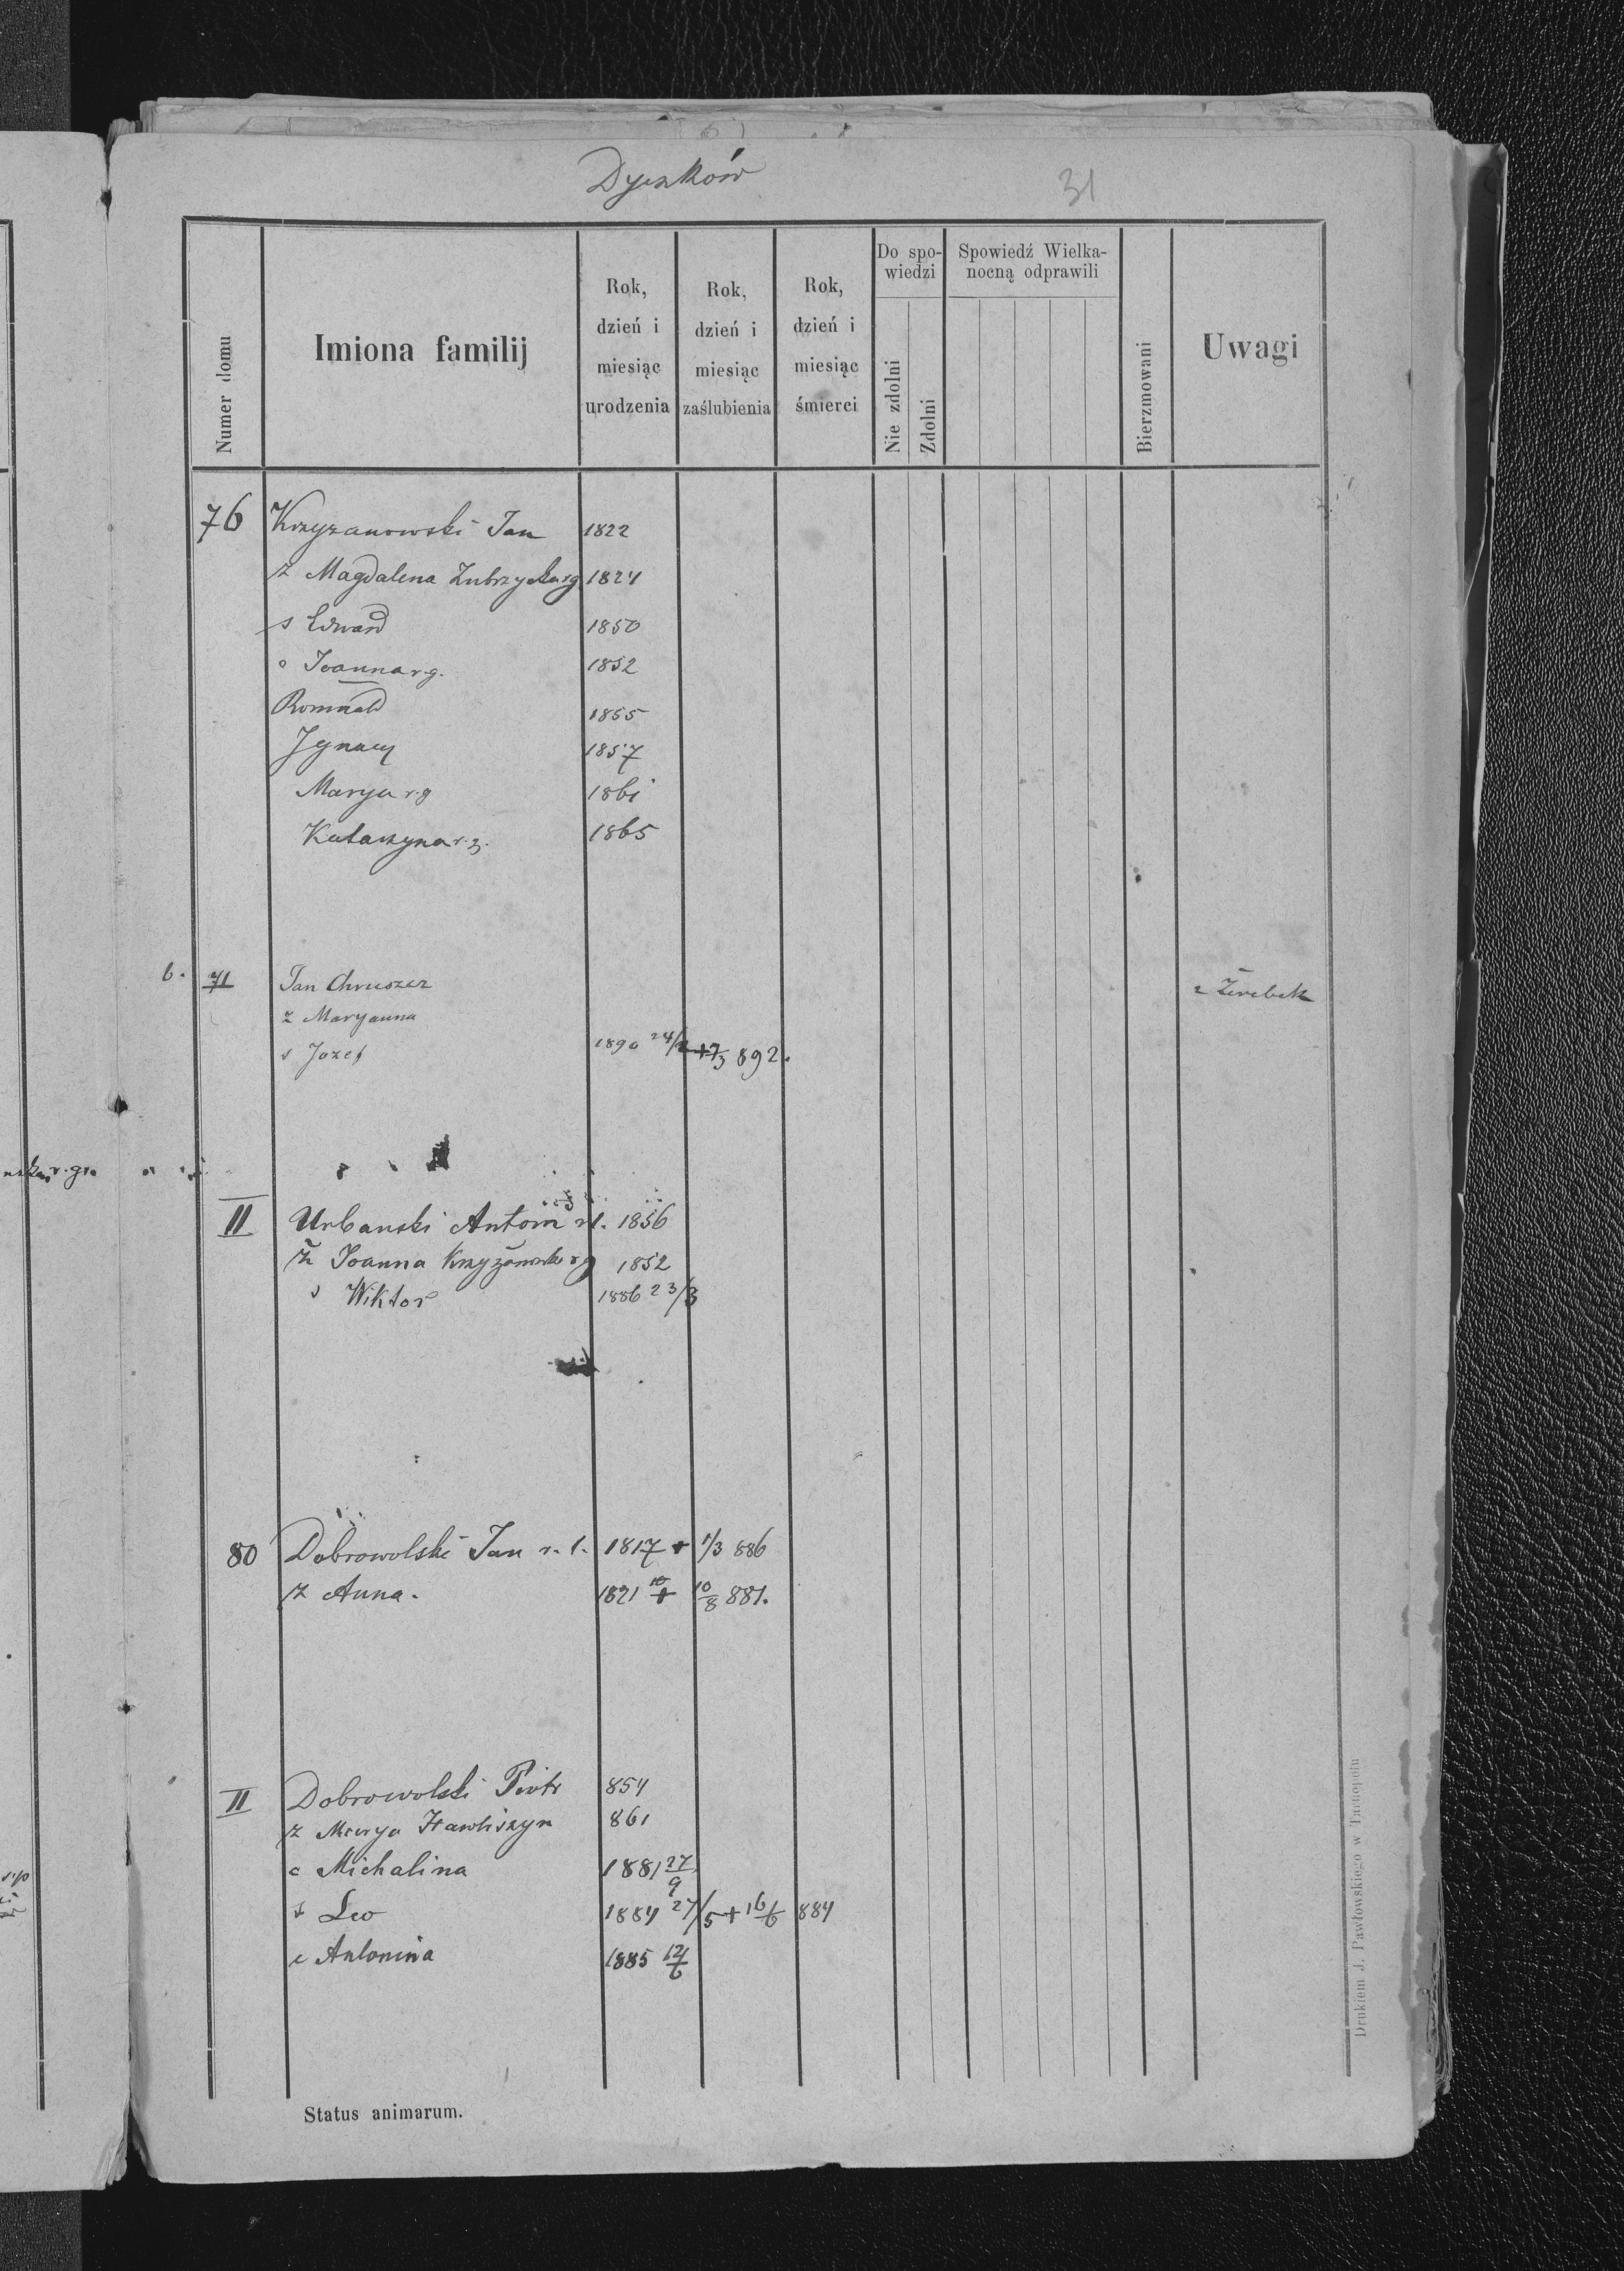 Dyczków
31
Numer domu
Imiona familij
Rok, dzień i miesiąc urodzenia
Rok, dzień i miesiąc zaślubienia
Rok, dzień i miesiąc śmierci
Do spo-
wiedzi
Nie zdolni
Zdolni
Spowiedź Wielka-
nocną odprawili
Bierzmowani
Uwagi
76 Krzyzanowski Jan 1822
ż Magdalena Zubrzycka rg 1824
s Edward 1850
c Joanna r.g. 1852
Romuald 1855
Jgnacy 1857
Marya r.g 1861
Katarzyna r.g. 1865
b. 71 Jan Chruszcz z Zerebek
z Maryanna
s Jozef 1890 24/ + 7/3 892.
II Urbanski Antoni r.l. 1856
ż Joanna Krzyżanowska rg 1852
s Wiktor 1886 23/3
80 Dobrowolski Jan r.l. 1817 + 1/3 886
ż Anna. 1821 + 10/8 881.
II Dobrowolski Piotr 854
ż Marya Hawliszyn 861
c Michalina 1881 27/9
s Leo 1884 27/5 + 16/6 884
c Antonina 1885 12/6
Status animarum.
Drukiem J. Pawłowskiego w Tarnopolu